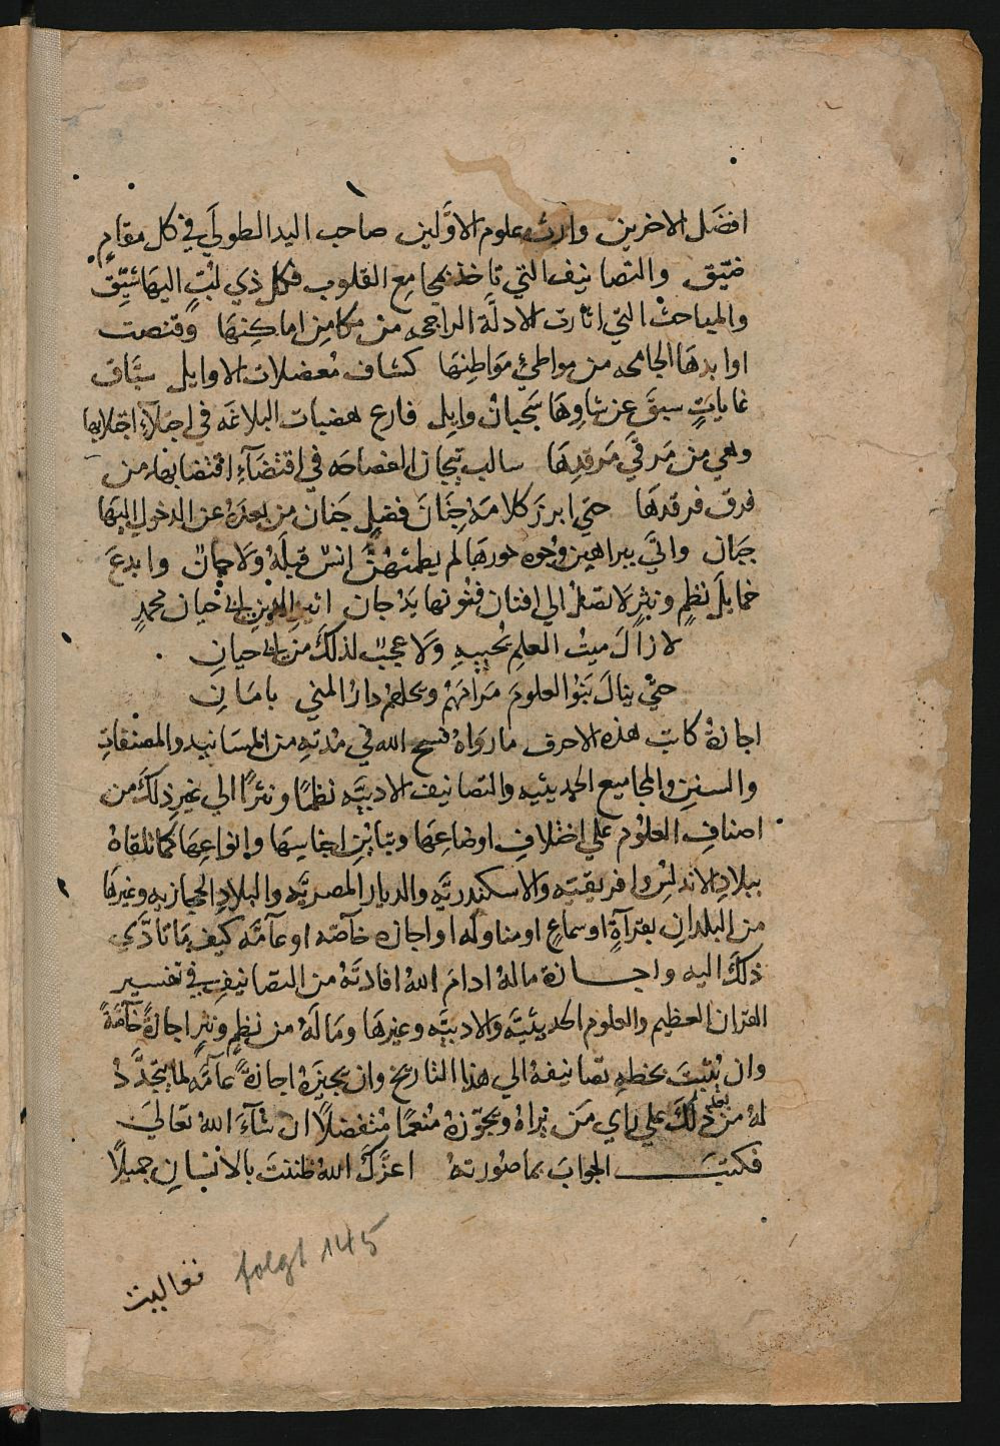 افضَل الاخرين وارث علوم الاوَّلين صاحب اليد الطولَي في كل مقامٍ
ضيّق والتصانيف التي تاخذ بمجامع القلوب فكل ذي لبٍّ اليهَا شيّق
والمباحث التي اثارت الادلَّة الراجحه من مكامِن اماكِنهَا وقنصت
اوابدهَا الجامحه من مواطئ مَوَاطِنهَا كشاف مُعضلات الاوايل سبَّاق
غاياتٍ سبقَ عن شاوِهَا سَحبانُ وايل فارع هضبات البلاغَه في اجتلآءِ اجتلابها
وهي من مَرقَي مَرقدِهَا سالب تيجان الفصاحَه في اقتضَآءِ اقتضابها من
فرق فرقدهَا حتي ابرزَ كلامهُ جِنَانَ فضلٍ جَنان من بعدَهُ عن الدخول اليهَا
جبَان واتَي ببراهين وجوه حورهَا لم يطمثهُنَّ انسٌ قبلَهُ وَلاَ جانٌ وابدعَ
خمايلَ نظمٍ ونثرٍ لا تصلُ الي افنان فنُونها يَدُ جان اثير الدين ابي حيان محمدٍ
لا زالَ ميتُ العلمِ يُحييهِ وَلاَ عجبٌ لذلكَ من ابي حيانِ
حتّي ينالَ بَنُوا العلومَ مَرامَهُمْ ويحلّهم دارُ المني بامَانِ
اجازةُ كاتب هذه الاحرف ما رَوَاهُ فسح الله في مُدتهِ من المسَانيد والمصنّفاتِ
والسننِ والمجاميع الحديثيه والتصانيف الادبيَّه نظمًا ونثرًا الي غير ذلكَ من
اصنافِ العلُوم علي اختلافِ اوضاعِهَا وتباينِ اجناسِهَا وانواعِهَا مما تلقاهُ
ببلادِ الاندلس وافريقيّه وَالاسكندريَّه والديار المصريَّه والبلادِ الحجازيه وغيرهَا
من البلدانِ بقرآةٍ او سماعٍ او مناولَه او اجازه خاصّه او عآمَّه كيفَ مَا تادَّي
ذلكَ اليه واجازة مالهُ ادامَ اللهُ افادتَهُ من التصانيفِ في تفسير
القران العظيم والعلوم الحديثيَّه وَالادبيَّه وغيرهَا ومَا لَهُ من نظمٍ ونثرٍ اجازةً خآصّةً
وان يُثبتَ بخطهِ تصَانيفهُ الي هذا التاريخ وان يجيزَهُ اجازةً عآمّه لما يتجدَّدُ
لهُ من بعد ذلكَ علي راي مَن يراهُ ويجوّزهُ مُنعمًا مُتفضلًا ان شآءَ اللهُ تعالَي
فكتبَ الجوابَ بما صُورتهُ اعزَّكَ اللهُ ظننتَ بالانسانِ جميلًا
فغاليت
folgt 145